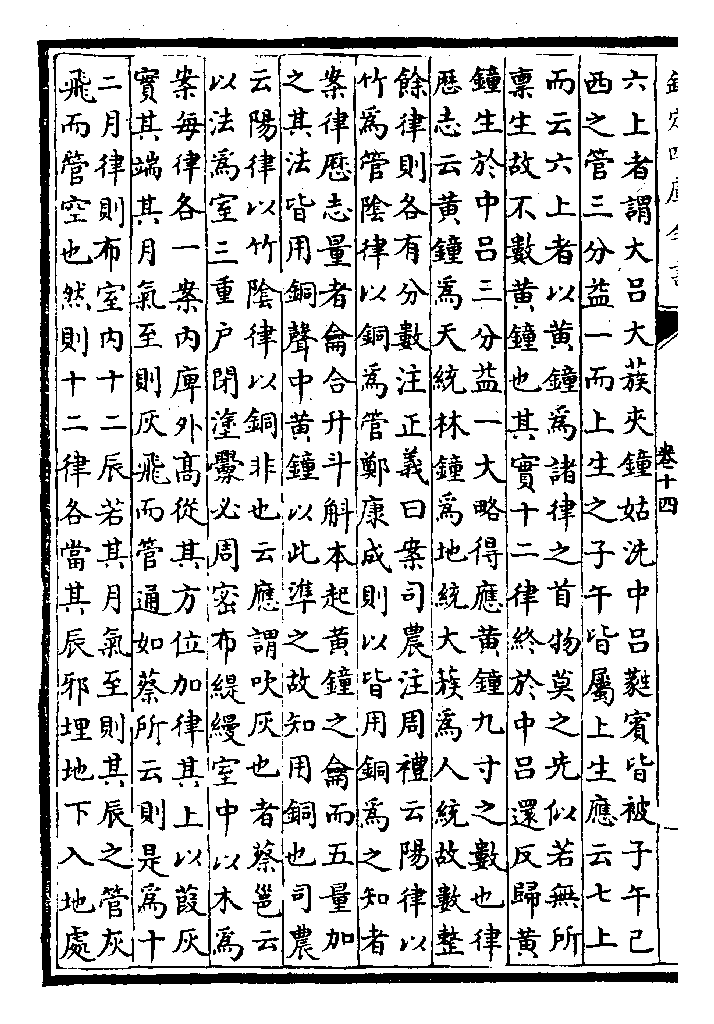 欽定四庫全書
卷十四
六上者謂大吕大蔟夾鐘姑洗中吕蕤賓皆被子午已
西之管三分益一而上生之子午皆屬上生應云七上
而云六上者以黄鐘為諸律之首物莫之先似若無所
稟生故不數黄鐘也其實十二律終於中吕還反歸黄
鐘生於中吕三分益一大略得應黄鐘九寸之數也律
厯志云黄鐘為天統林鐘為地統大蔟為人統故數整
餘律則各有分數注正義曰案司農注周禮云陽律以
竹為管陰律以銅為管鄭康成則以皆用銅為之知者
案律厯志量者龠合升斗斛本起黄鐘之龠而五量加
之其法皆用銅聲中黄鐘以此準之故知用銅也司農
云陽律以竹陰律以銅非也云應謂吹灰也者蔡邕云
以法為室三重户閉塗釁必周密布緹縵室中以木為
案每律各一案内庳外髙從其方位加律其上以葭灰
實其端其月氣至則灰飛而管通如蔡所云則是為十
二月律則布室内十二辰若其月氣至則其辰之管灰
飛而管空也然則十二律各當其辰邪埋地下入地處